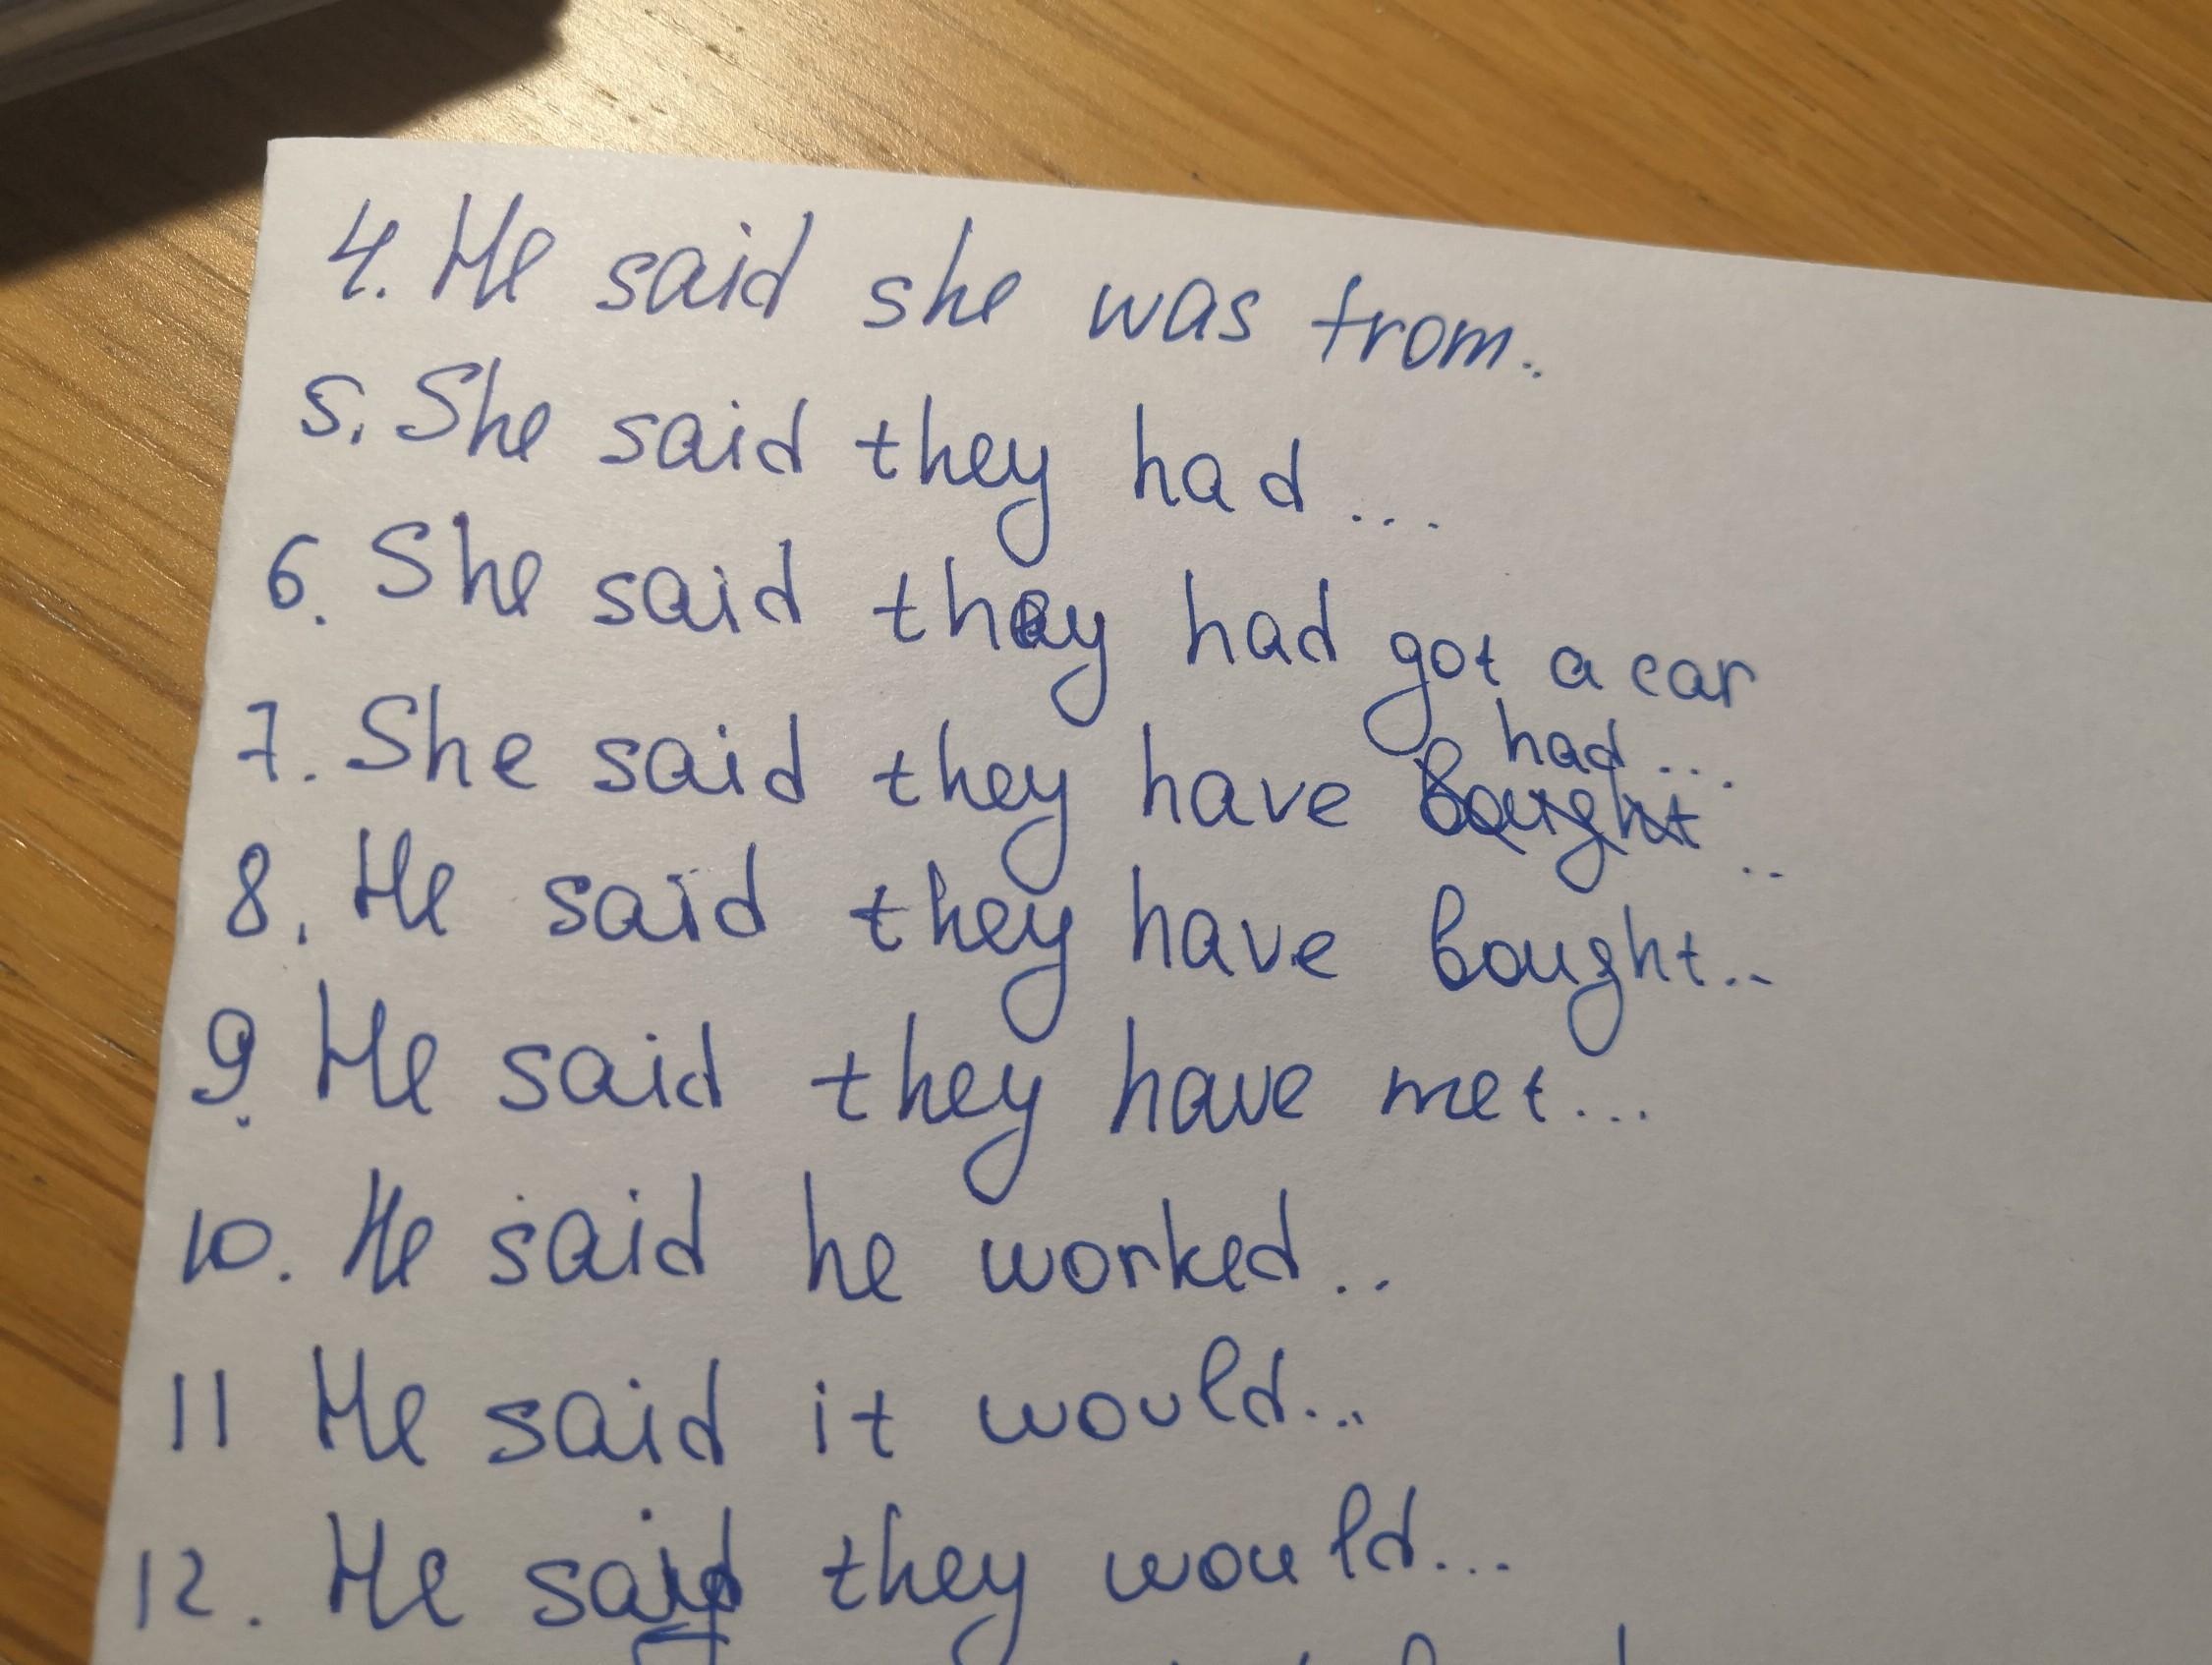 4. He said she was from..
5. She said they had...
6. She said they had got a car
had...
7. She said they have bought ..
8. He said they have bought..
9. He said they have met...
10. He said he worked..
11 He said it would...
12. He said they would...